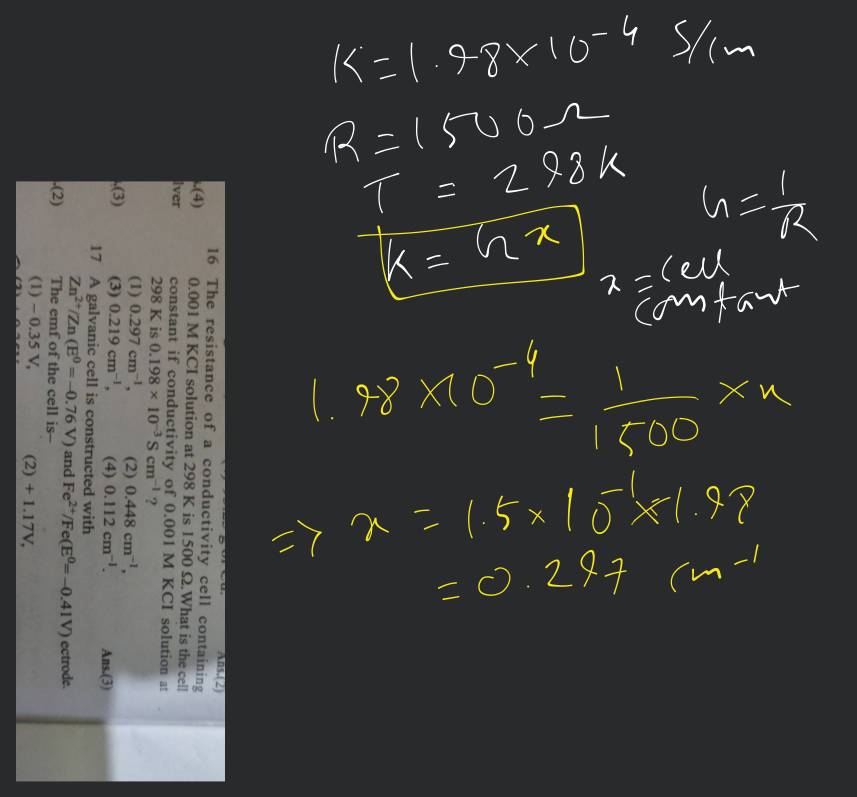 K = 1.98 × 10⁻⁴ S/cm
R = 1500 Ω
T = 298 K
K = G x
G = 1/R
x = cell
constant
1.98 × 10⁻⁴ = 1/1500 × x
=> x = 1.5 × 10⁻¹ × 1.98
= 0.297 cm⁻¹
Ans.(2)
16 The resistance of a conductivity cell containing
0.001 M KCl solution at 298 K is 1500 Ω. What is the cell
constant if conductivity of 0.001 M KCl solution at
298 K is 0.198 × 10⁻³ S cm⁻¹ ?
(1) 0.297 cm⁻¹, (2) 0.448 cm⁻¹,
(3) 0.219 cm⁻¹, (4) 0.112 cm⁻¹. Ans.(3)
17 A galvanic cell is constructed with
Zn²⁺/Zn (E⁰ = –0.76 V) and Fe²⁺/Fe(E⁰= –0.41V) ectrode.
The emf of the cell is–
(1) – 0.35 V, (2) + 1.17V,
(4)
lver
(3)
(2)